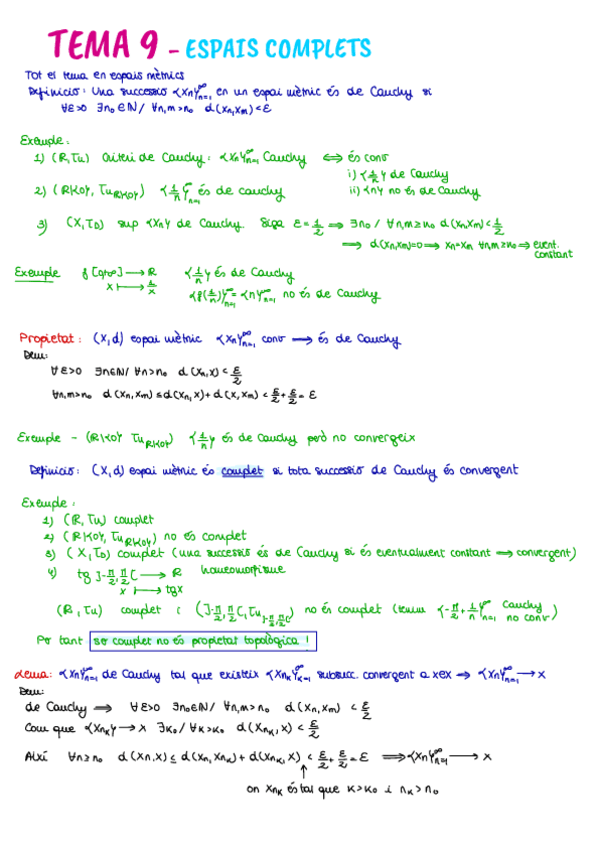 TEMA 9 - ESPAIS COMPLETS
Tot el tema en espais mètrics
Definició: Una successió {xn}∞n=1 en un espai mètric és de Cauchy si
∀ε>0 ∃n₀∈ℕ / ∀n,m>n₀ d(xn,xm)<ε
Exemple:
1) (ℝ,Tu) Criteri de Cauchy: {xn}∞n=1 Cauchy ⟺ és conv
i) {1/n} de Cauchy
2) (ℝ\{0}, Tuℝ\{0}) {1/n}∞n=1 és de cauchy
ii) {n} no és de Cauchy
3) (X,TD) sup {xn} de Cauchy. Siga ε=1/2 ⟹ ∃n₀ / ∀n,m≥n₀ d(xn,xm)<1/2
⟹ d(xn,xm)=0 ⟹ xn=xm ∀n,m≥n₀ ⟹ event. constant
Exemple f ]0,+∞[ ⟶ ℝ {1/n} és de Cauchy
x ⟼ 1/x {f(1/n)}∞n=1 = {n}∞n=1 no és de Cauchy
Propietat: (X,d) espai mètric {xn}∞n=1 conv ⟹ és de Cauchy
Dem:
∀ε>0 ∃n₀∈ℕ / ∀n>n₀ d(xn,x)<ε/2
∀n,m>n₀ d(xn,xm)≤d(xn,x)+d(x,xm)<ε/2+ε/2=ε
Exemple - (ℝ\{0} Tuℝ\{0}) {1/n} és de Cauchy però no convergeix
Definició: (X,d) espai mètric és complet si tota successió de Cauchy és convergent
Exemple:
1) (ℝ,Tu) complet
2) (ℝ\{0}, Tuℝ\{0}) no és complet
3) (X,TD) complet (una successió és de Cauchy si és eventualment constant ⟹ convergent)
4) tg ]-π/2,π/2[ ⟶ ℝ homeomorfisme
x ⟼ tgx
(ℝ,Tu) complet i (]-π/2,π/2[, Tu]-π/2,π/2[) no és complet (tenim {-π/2+1/n}∞n=1 Cauchy no conv)
Per tant ser complet no és propietat topològica!
Lema: {xn}∞n=1 de Cauchy tal que existeix {xnk}∞k=1 subsucc. convergent a x∈X ⟹ {xn}∞n=1 ⟶ x
Dem:
de Cauchy ⟹ ∀ε>0 ∃n₀∈ℕ / ∀n,m>n₀ d(xn,xm)<ε/2
Com que {xnk} ⟶ x ∃k₀ / ∀k>k₀ d(xnk,x)<ε/2
Així ∀n≥n₀ d(xn,x)≤d(xn,xnk)+d(xnk,x)<ε/2+ε/2=ε ⟹ {xn}∞n=1 ⟶ x
↑
on xnk és tal que k>k₀ i nk>n₀